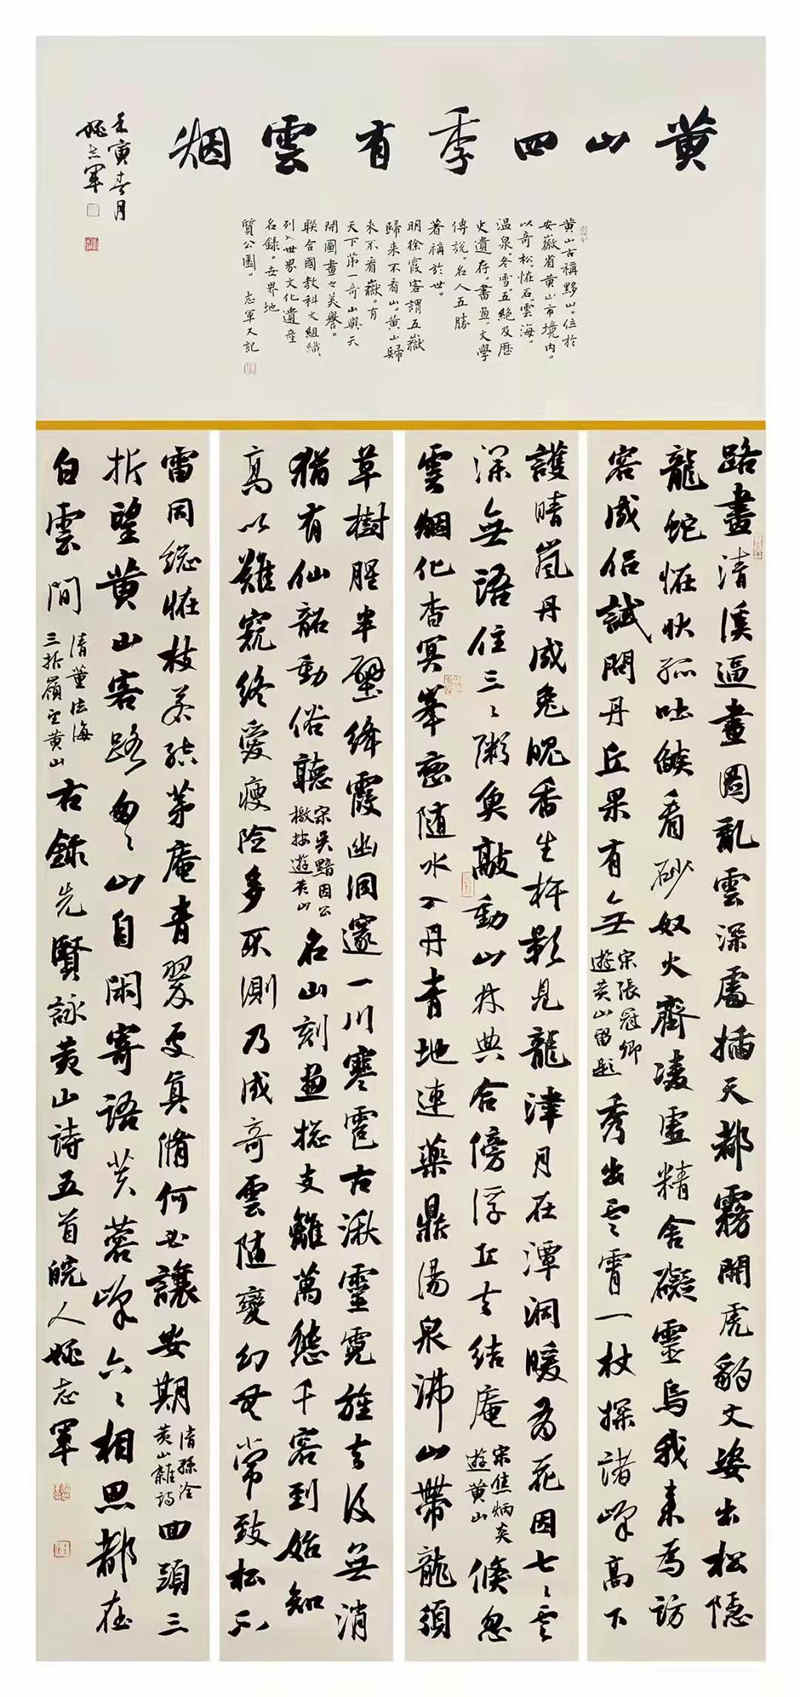 黄山四季有雲烟
壬寅春月
姚志軍
黄山古稱黟山。位於
安徽省黄山市境内。
以奇松怪石。雲海。
温泉。冬雪。五絶及歷
史遺存。書画。文學
傳說。名人五勝
著稱於世。
明徐霞客謂五嶽
歸来不看山。黄山歸
来不看嶽。有
天下第一奇山與天
開圖畫之美譽。
聯合國教科文組織
列入世界文化遺産
名録。世界地
質公園。志軍又記
路盡清溪逼畫圖亂雲深處插天都霧開虎豹文姿出松隱
龍蛇怪狀孤吐燄看砂奴火齊凌虚精舍礙靈烏我来為訪
容成侣試問丹丘果有無 宋張冠卿 遊黄山留題 秀出雲霄一杖探諸峰高下
護晴嵐丹成兔魄香生杵影見龍津月在潭洞暖為花因七七雲
深無語住三三粥魚敲動山林興合傍浮丘去結庵 宋焦炳炎 遊黄山 倏忽
雲烟化杳冥峯巒隨水入丹青地連藥鼎湯泉沸山帶龍須
草樹腥半壁絳霞幽洞邃一川寒雹古湫靈霓旌去後無消
猶有仙韶動俗聽 宋吴黯因公 檄按遊黄山 名山刻畫総支離萬態千容到始知
高以難窺終愛瘦險多不測乃成奇雲随變幻無常致松不
雷同総怪枝若结茅庵青翠處真脩何必讓安期 清孫洽 黄山雜詩 回頭三
折望黄山客路匆匆山自閑寄語芙蓉峰六六相思都在
白雲間 清董法海 三折嶺望黄山 右錄先賢詠黄山詩五首皖人姚志軍